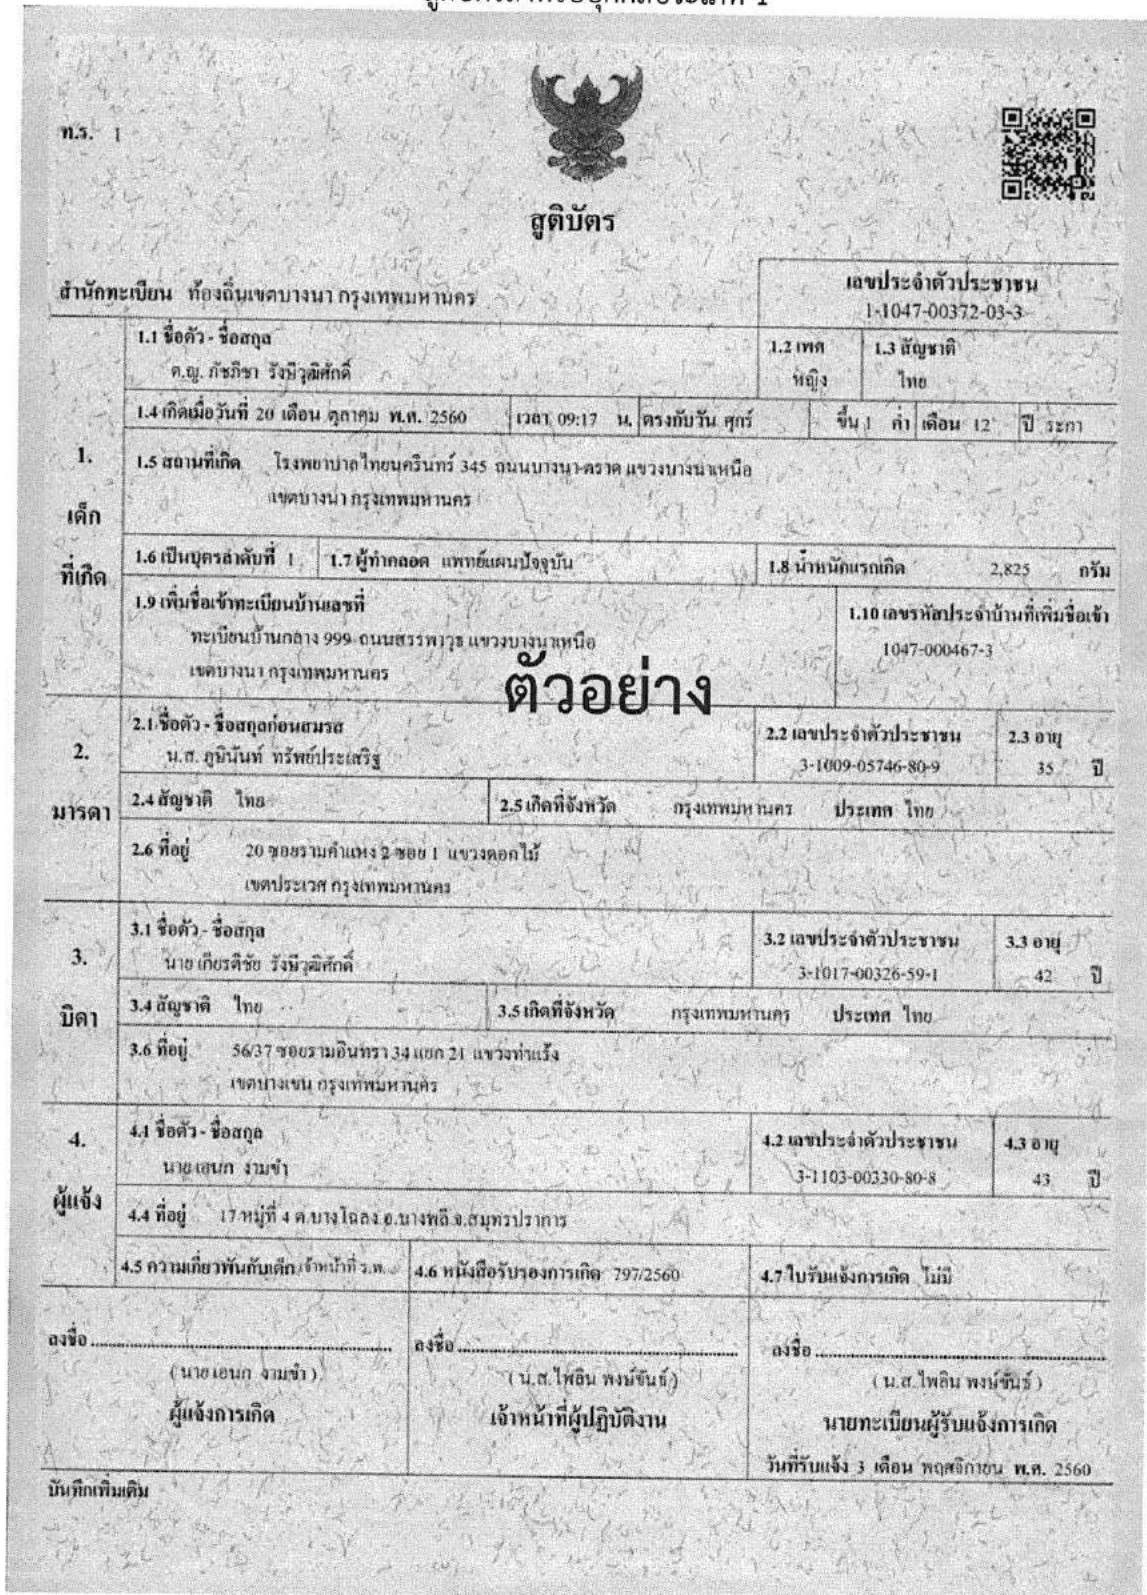 ท.ร. 1
สูติบัตร
สำนักทะเบียน ท้องถิ่นเขตบางนา กรุงเทพมหานคร
เลขประจำตัวประชาชน
1-1047-00372-03-3
1.1 ชื่อตัว - ชื่อสกุล
ด.ญ. ภัชภิชา รังษีวุฒิศักดิ์
1.2 เพศ
หญิง
1.3 สัญชาติ
ไทย
1.4 เกิดเมื่อวันที่ 20 เดือน ตุลาคม พ.ศ. 2560 เวลา 09:17 น. ตรงกับวัน ศุกร์ ขึ้น 1 ค่ำ เดือน 12 ปี ระกา
1.
เด็ก
ที่เกิด
1.5 สถานที่เกิด โรงพยาบาลไทยนครินทร์ 345 ถนนบางนา-ตราด แขวงบางนาเหนือ
เขตบางนา กรุงเทพมหานคร
1.6 เป็นบุตรลำดับที่ 1 1.7 ผู้ทำคลอด แพทย์แผนปัจจุบัน 1.8 น้ำหนักแรกเกิด 2,825 กรัม
1.9 เพิ่มชื่อเข้าทะเบียนบ้านเลขที่
ทะเบียนบ้านกลาง 999 ถนนสรรพาวุธ แขวงบางนาเหนือ
เขตบางนา กรุงเทพมหานคร
1.10 เลขรหัสประจำบ้านที่เพิ่มชื่อเข้า
1047-000467-3
ตัวอย่าง
2.
มารดา
2.1 ชื่อตัว - ชื่อสกุลก่อนสมรส
น.ส. ภูมินันท์ ทรัพย์ประเสริฐ
2.2 เลขประจำตัวประชาชน
3-1009-05746-80-9
2.3 อายุ
35 ปี
2.4 สัญชาติ ไทย 2.5 เกิดที่จังหวัด กรุงเทพมหานคร ประเทศ ไทย
2.6 ที่อยู่ 20 ซอยรามคำแหง 2 ซอย 1 แขวงดอกไม้
เขตประเวศ กรุงเทพมหานคร
3.
บิดา
3.1 ชื่อตัว - ชื่อสกุล
นาย เกียรติชัย รังษีวุฒิศักดิ์
3.2 เลขประจำตัวประชาชน
3-1017-00326-59-1
3.3 อายุ
42 ปี
3.4 สัญชาติ ไทย 3.5 เกิดที่จังหวัด กรุงเทพมหานคร ประเทศ ไทย
3.6 ที่อยู่ 56/37 ซอยรามอินทรา 34 แยก 21 แขวงท่าแร้ง
เขตบางเขน กรุงเทพมหานคร
4.
ผู้แจ้ง
4.1 ชื่อตัว - ชื่อสกุล
นาย เอนก งามขำ
4.2 เลขประจำตัวประชาชน
3-1103-00330-80-8
4.3 อายุ
43 ปี
4.4 ที่อยู่ 17 หมู่ที่ 4 ต.บางโฉลง อ.บางพลี จ.สมุทรปราการ
4.5 ความเกี่ยวพันกับเด็ก เจ้าหน้าที่ ร.พ. 4.6 หนังสือรับรองการเกิด 797/2560 4.7 ใบรับแจ้งการเกิด ไม่มี
ลงชื่อ
(นาย เอนก งามขำ)
ผู้แจ้งการเกิด
ลงชื่อ
(น.ส. ไพลิน พงษ์ขันธ์)
เจ้าหน้าที่ผู้ปฏิบัติงาน
ลงชื่อ
(น.ส. ไพลิน พงษ์ขันธ์)
นายทะเบียนผู้รับแจ้งการเกิด
วันที่รับแจ้ง 3 เดือน พฤศจิกายน พ.ศ. 2560
บันทึกเพิ่มเติม